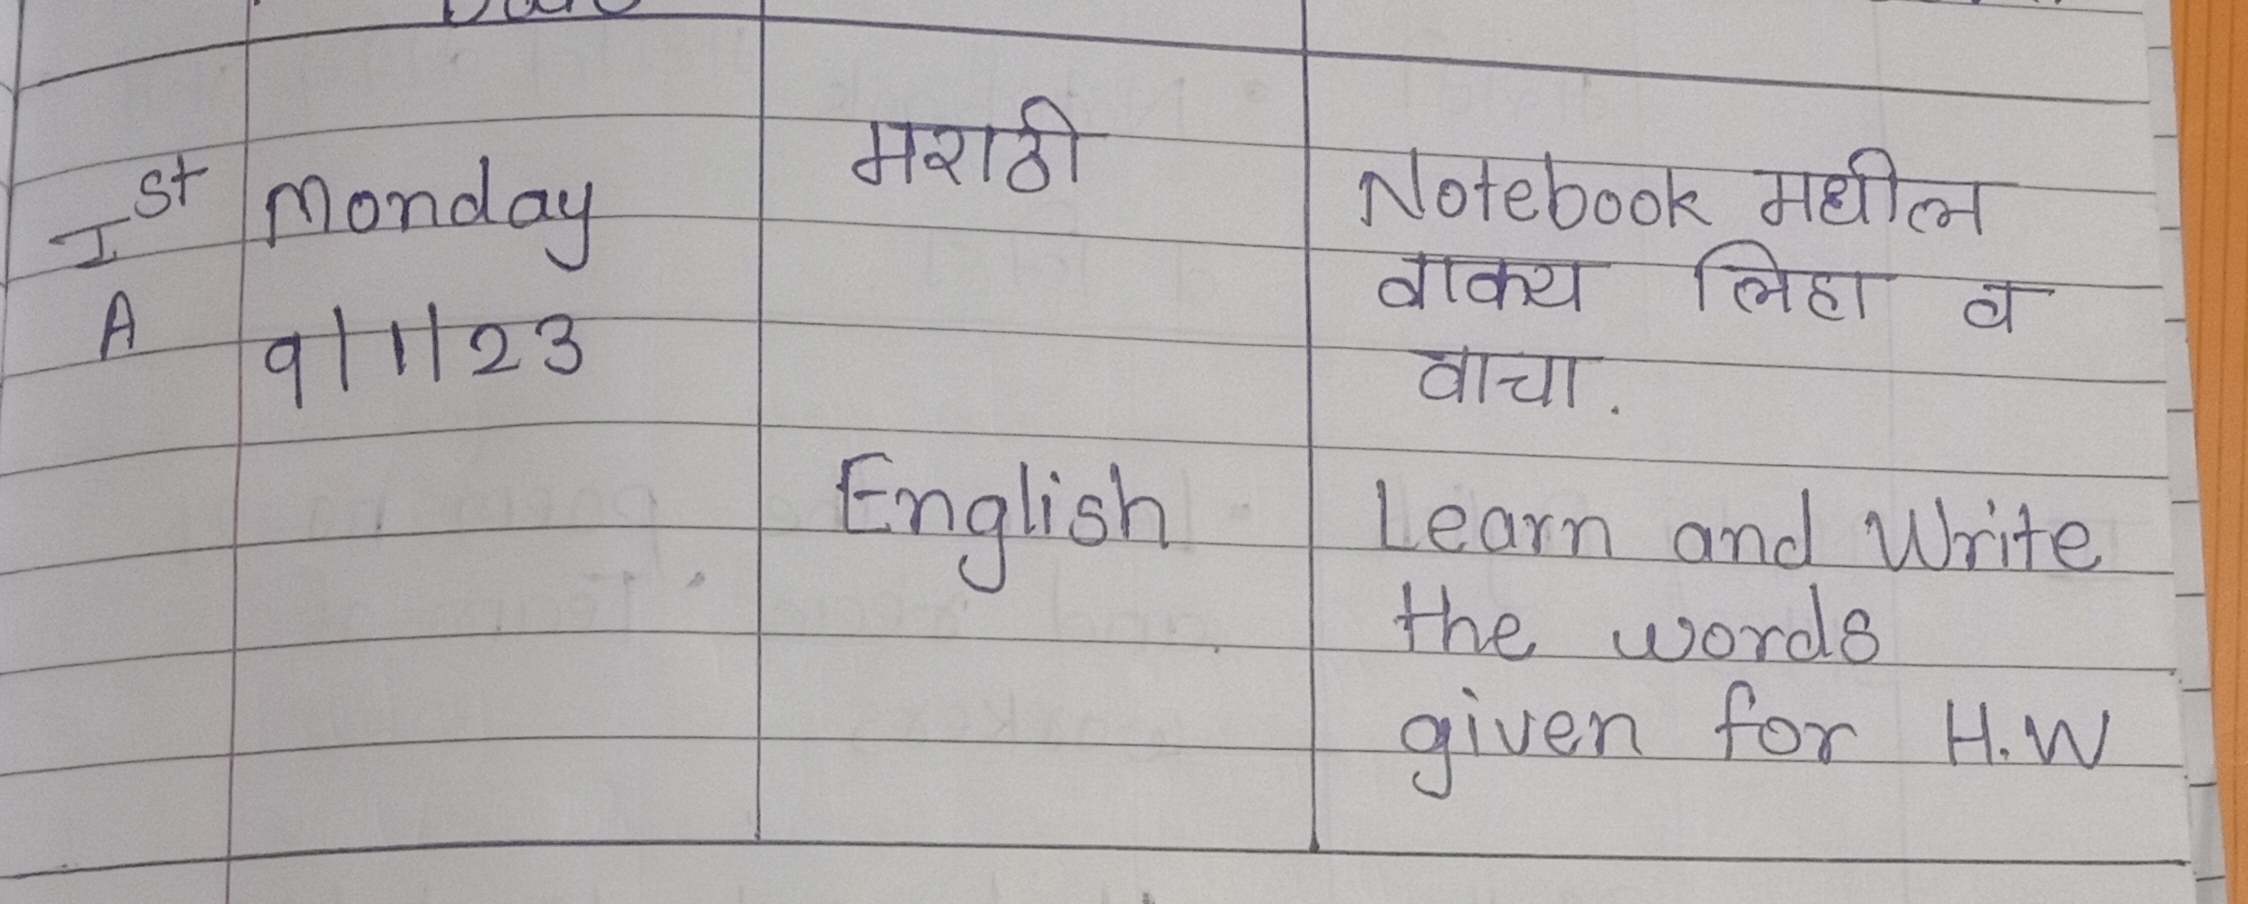 Date
मराठी
Ist Monday Notebook मधील
वाक्य लिहा व
A 9/1/23
वाचा.
English Learn and Write
the words
given for H.W